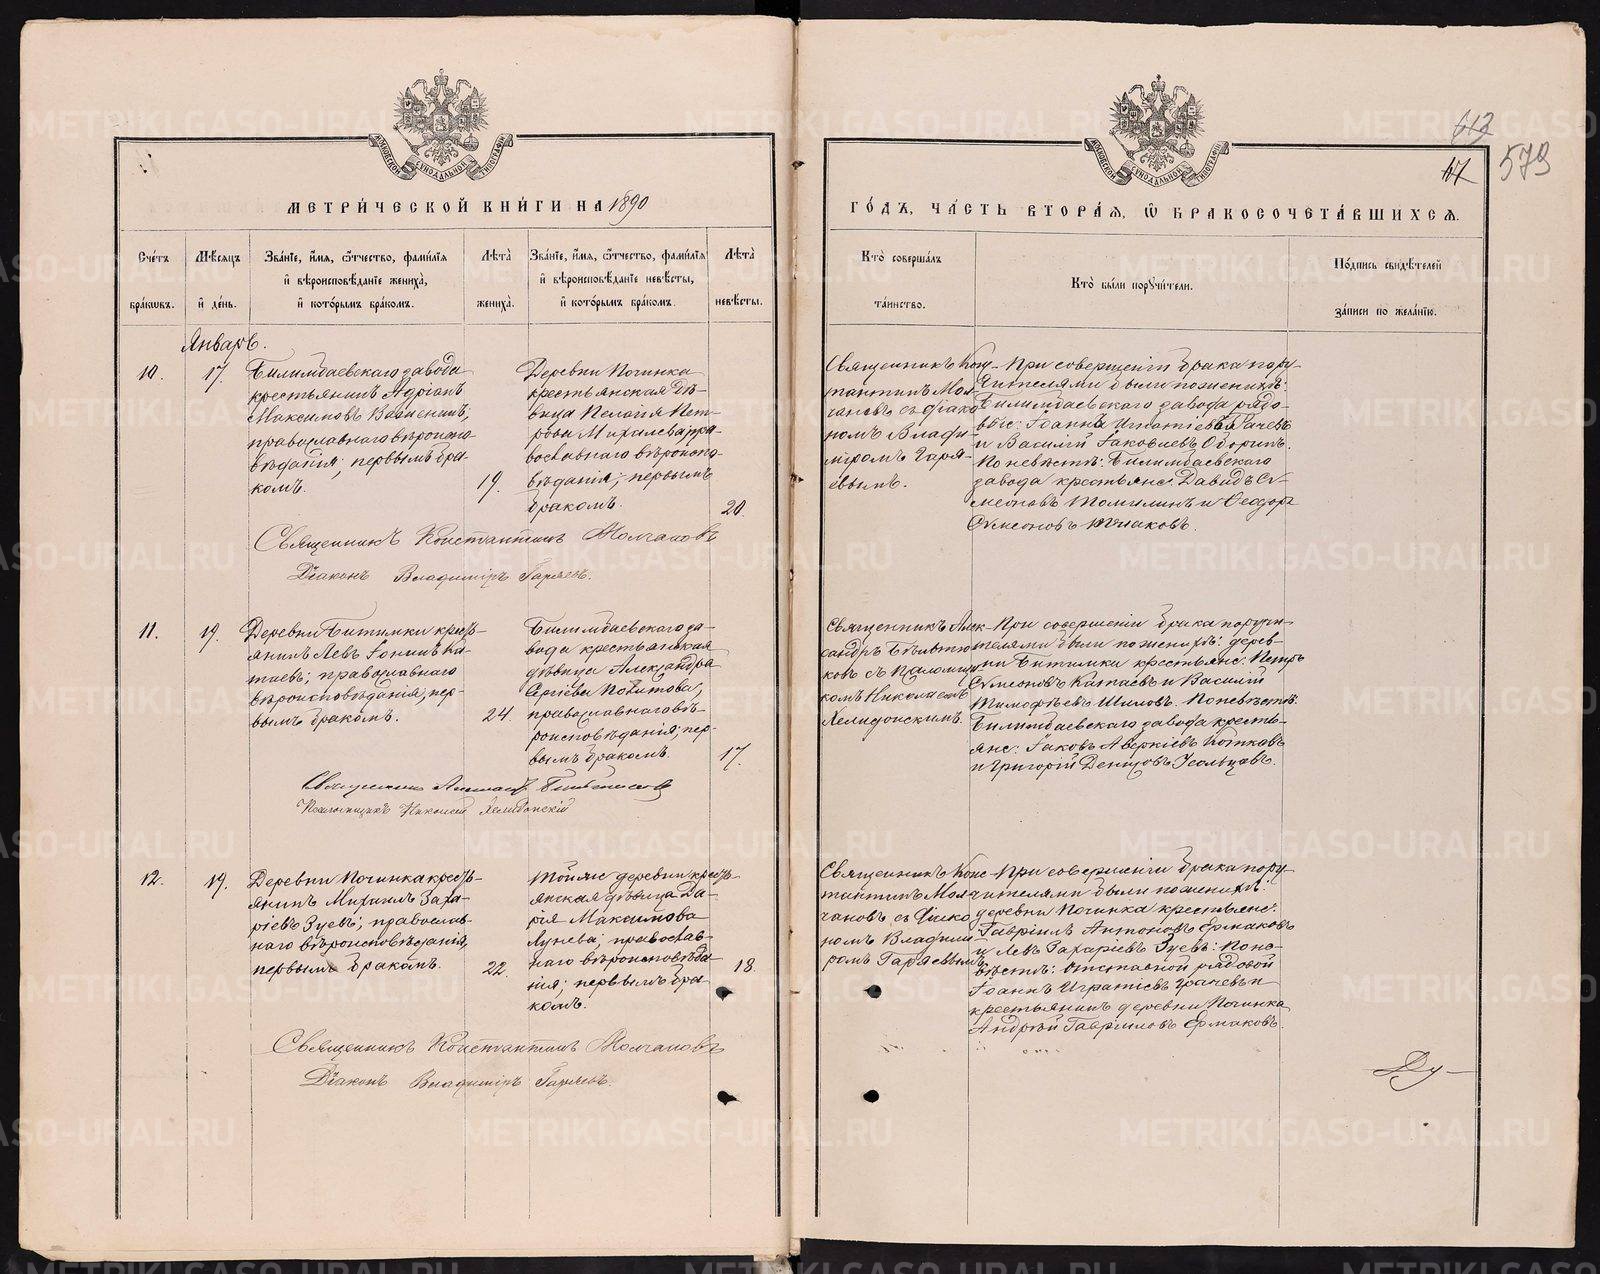 МЕТРИ́ЧЕСКОЙ КНИ́ГИ НА 1890
Сче́тъ бра́кωвъ.
Мѣ́сѧцъ и҆ де́нь.
Зва́нїе, и҆́мѧ, ѻ҆́тчество, фами́лїѧ
и҆ вѣроисповѣ́данїе жениха̀,
и҆ кото́рымъ бра́комъ.
Лѣта̀ жениха̀.
Зва́нїе, и҆́мѧ, ѻ҆́тчество, фами́лїѧ
и҆ вѣроисповѣ́данїе невѣ́сты,
и҆ кото́рымъ бра́комъ.
Лѣта̀ невѣ́сты.
Январь.
10.
17.
Билимбаевскаго завода
крестьянинъ Адріанъ
Максимовъ
православнаго вѣроиспо-
вѣданія; первымъ бра-
комъ.
19.
Деревни Починка
крестьянская дѣ-
вица Пелагія Пет-
рова Михалева, пра-
вославнаго вѣроиспо-
вѣданія; первымъ
бракомъ.
20.
Священникъ Константинъ Молчановъ
Діаконъ Владиміръ Гаряевъ.
11.
19.
Деревни Битимки кресть-
янинъ Левъ Іонинъ Ка-
таевъ; православнаго
вѣроисповѣданія, пер-
вымъ бракомъ.
24.
Билимбаевскаго за-
вода крестьянская
дѣвица Александра
православнаго вѣ-
роисповѣданія; пер-
вымъ бракомъ.
17.
Священникъ
Псаломщикъ Николай Хелидонскій
12.
19.
Деревни Починка кресть-
янинъ Михаилъ Заха-
ріевъ Зуевъ; православ-
наго вѣроисповѣданія,
первымъ бракомъ.
22.
Той же деревни кресть-
янская дѣвица Да-
рія Максимова
Лунева; православ-
наго вѣроисповѣда-
нія; первымъ бра-
комъ.
18.
Священникъ Константинъ Молчановъ
Діаконъ Владиміръ Гаряевъ.
613
67
579
ГО́ДЪ, ЧА́СТЬ ВТОРА́Ѧ, Ѡ҆ БРАКОСОЧЕТА́ВШИХСѦ.
Кто̀ соверша́лъ та́инство.
Кто̀ бы́ли порꙋчи́тели.
По́дпись свидѣ́телей
за́писи по жела́нїю.
Священникъ Конс-
тантинъ Мол-
чановъ съ діако-
номъ Влади-
міромъ Гаря-
евымъ.
При совершеніи брака пору-
чителями были по женихѣ:
Билимбаевскаго завода рядо-
вые: Іоаннъ Игнатіевъ Грачевъ
и Василій Іаковлевъ Оборинъ.
По невѣстѣ: Билимбаевскаго
завода крестьянс. Давидъ Сѵ-
меоновъ Томилинъ и Ѳеодоръ
Сѵмеоновъ
Священникъ Алек-
сандръ
ковъ съ псаломщи-
комъ Николаемъ
Хелидонскимъ.
При совершеніи брака поручи-
телями были по женихѣ: дерев-
ни Битимки крестьянс. Петръ
Сѵмеоновъ Катаевъ и Василій
Тимофѣевъ Шиловъ. По невѣстѣ:
Билимбаевскаго завода кресть-
янс: Іаковъ Аверкіевъ
и Григорій Усольцовъ.
Священникъ Конс-
тантинъ Мол-
чановъ съ діако-
номъ Влади-
ромъ Гаряевымъ.
При совершеніи брака пору-
чителями были по женихѣ:
деревни Починка крестьянс:
Гавріилъ Антоновъ Ермаковъ
и Левъ Захаріевъ Зуевъ: По не-
вѣстѣ: отставной рядовой
Іоаннъ Игнатіевъ Грачевъ и
крестьянинъ деревни Починка
Андрей Гавріиловъ Ермаковъ.